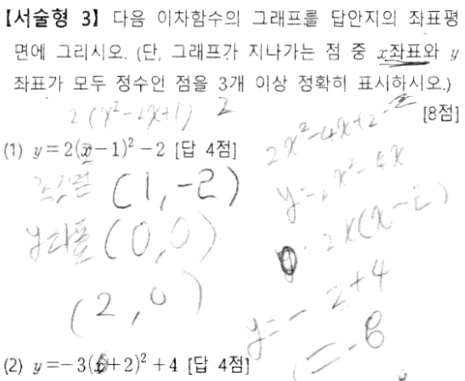 【서술형 3】 다음 이차함수의 그래프를 답안지의 좌표평
면에 그리시오. (단, 그래프가 지나가는 점 중 x좌표와 y
좌표가 모두 정수인 점을 3개 이상 정확히 표시하시오.)
[8점]
2(x²-2x+1) 2
2x²-4x+2-2
(1) y=2(x-1)²-2 [답 4점]
(1,-2)
y=2x²-4x
y좌표 (0,0)
2x(x-2)
(2,0)
y=-2+4
=-8
(2) y=-3(x+2)²+4 [답 4점]